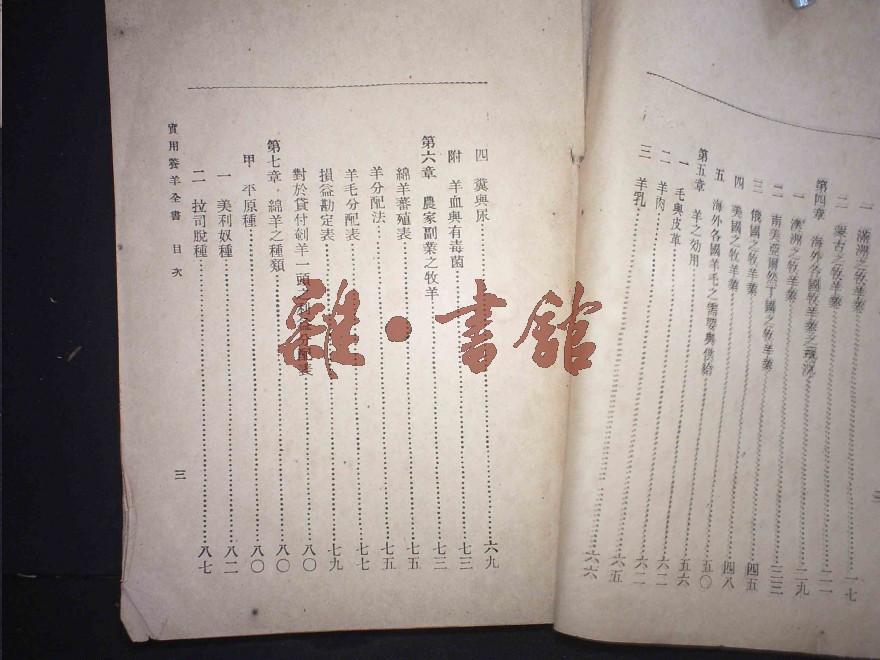 一 滿洲之牧羊業 一七
二 蒙古之牧羊業 二一
第四章 海外各國牧羊業之概況 二九
一 澳洲之牧羊業 二九
二 南美亞爾然丁國之牧羊業 三三
三 俄國之牧羊業 四五
四 美國之牧羊業 四八
五 海外各國羊毛之需要與供給 五〇
第五章 羊之効用 五六
一 毛與皮革 六二
二 羊肉 六二
三 羊乳 六五
六六
四 糞與尿 六九
附 羊血與有毒菌 七三
第六章 農家副業之牧羊 七三
綿羊蕃殖表 七五
羊分配法 七五
羊毛分配表 七七
損益勘定表 七九
對於貸付羊一頭之利益分配表 八〇
第七章 綿羊之種類 八〇
甲 平原種 八〇
一 美利奴種 八二
二 拉司脫種 八七
實用養羊全書 目次 三
雜·書館